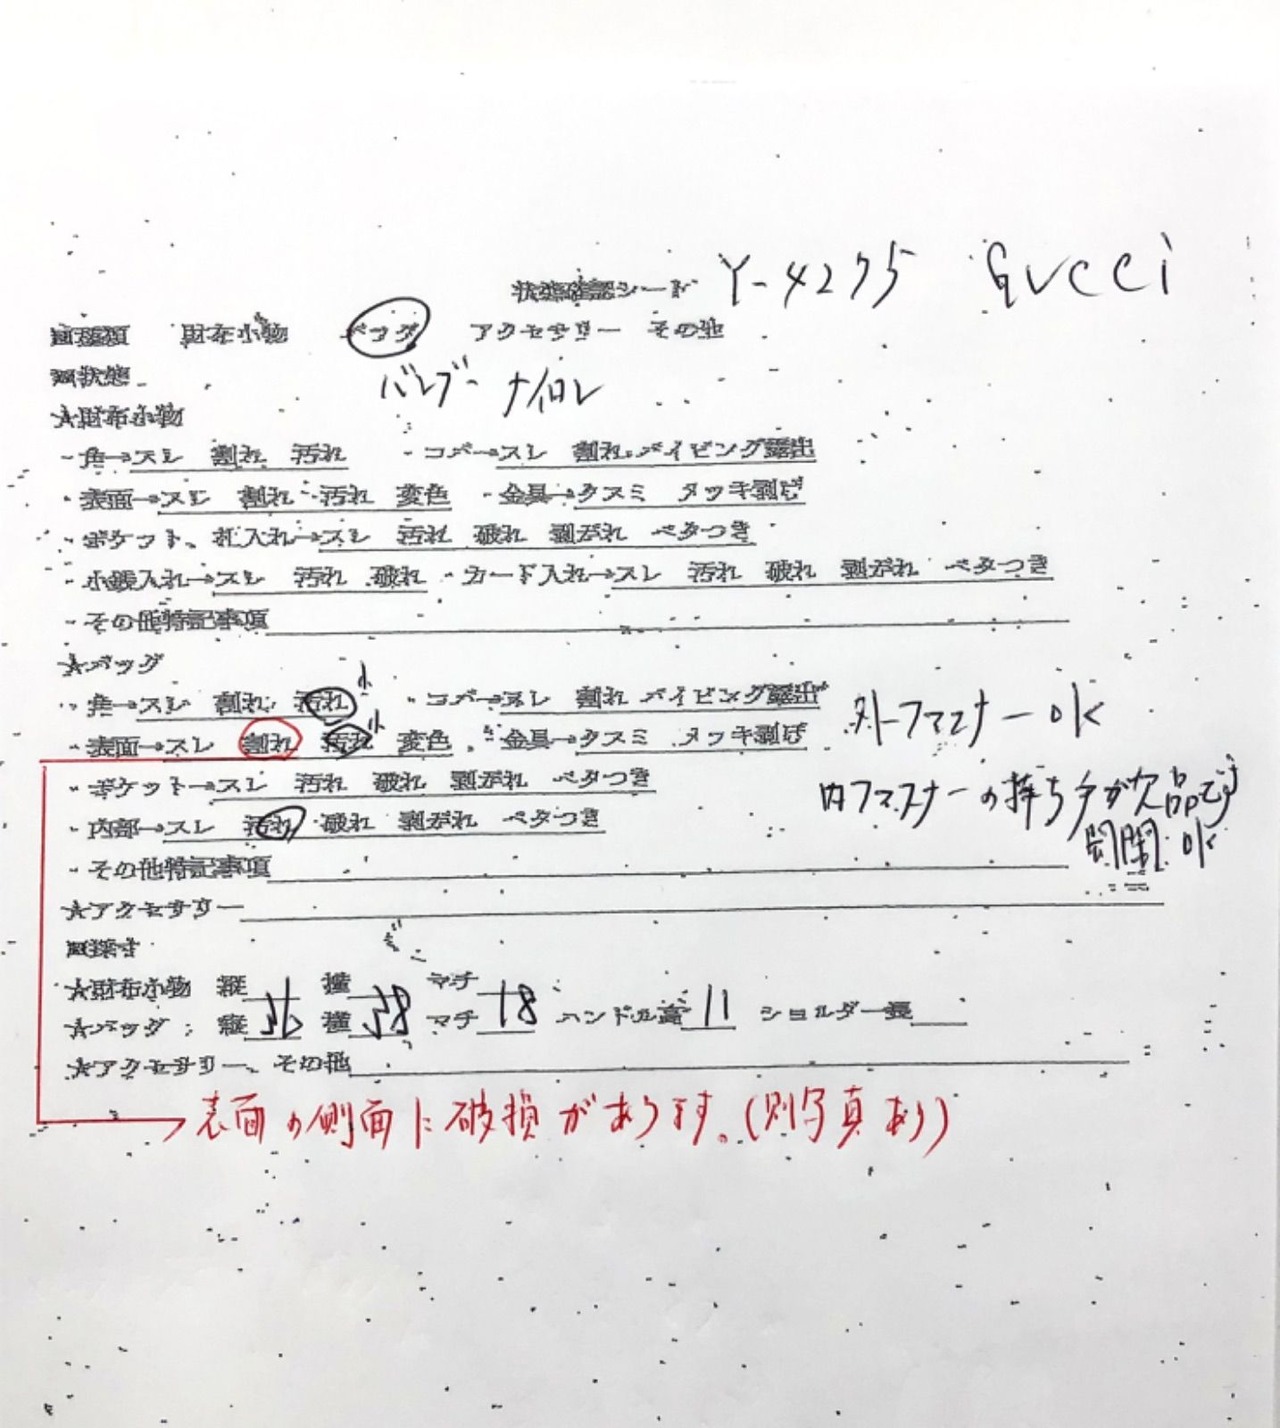 状態確認シート Y-4275 GUCCI
■種類 財布小物 バッグ アクセサリー その他
■状態 バンブー ナイロン
★財布小物
・角→スレ 割れ 汚れ ・コバ→スレ 割れ パイピング露出
・表面→スレ 割れ 汚れ 変色 ・金具→クスミ メッキ剥げ
・ポケット、札入れ→スレ 汚れ 破れ 剥がれ ベタつき
・小銭入れ→スレ 汚れ 破れ ・カード入れ→スレ 汚れ 破れ 剥がれ ベタつき
・その他特記事項
★バッグ
小
・角→スレ 割れ 汚れ ・コバ→スレ 割れ パイピング露出 外ファスナーOK
・表面→スレ 割れ 汚れ 小 変色 ・金具→クスミ メッキ剥げ
・ポケット→スレ 汚れ 破れ 剥がれ ベタつき 内ファスナーの持ち手が欠品です
・内部→スレ 汚れ 破れ 剥がれ ベタつき 開閉OK
・その他特記事項
★アクセサリー
■採寸
★財布小物 縦 横 マチ
★バッグ:縦36 横38 マチ18 ハンドル高11 ショルダー長
★アクセサリー、その他
表面の側面に破損があります。(別写真あり)